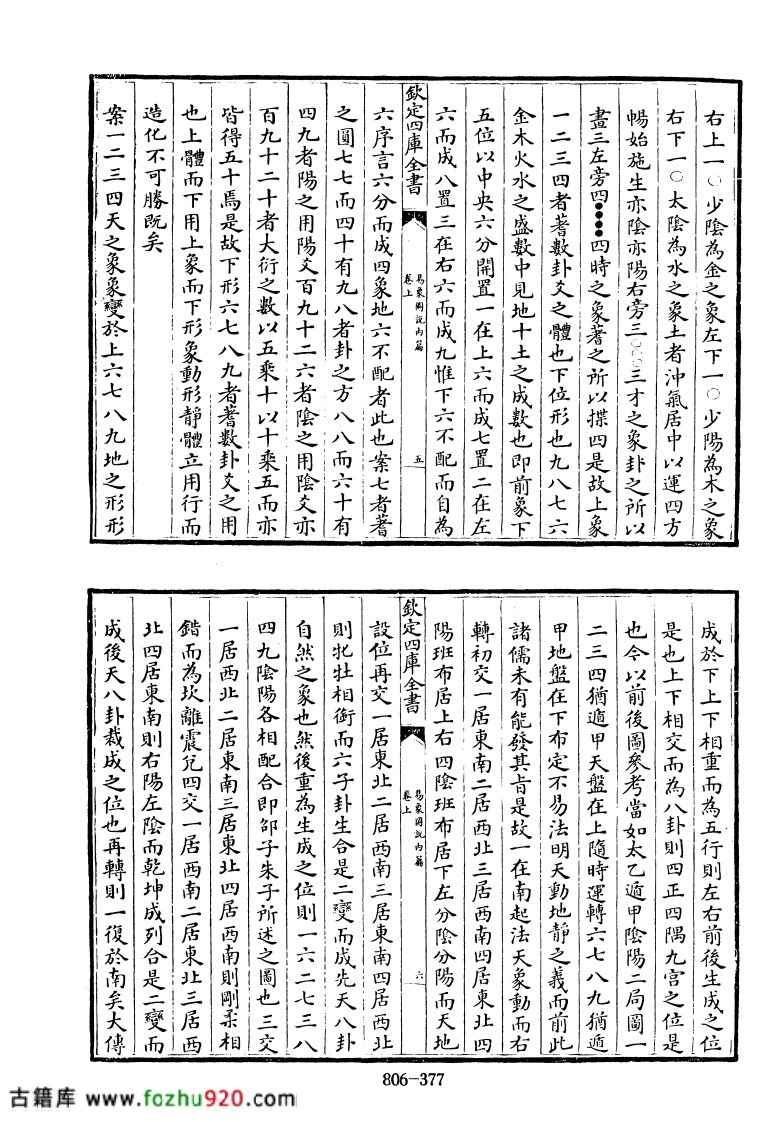 右上一○少陰為金之象左下一○少陽為木之象
右下一○太陰為水之象土者沖氣居中以運四方
暢始施生亦陰亦陽右旁三○○○三才之象卦之所以
畫三左旁四●●●●四時之象蓍之所以揲四是故上象
一二三四者蓍數卦爻之體也下位形也九八七六
金木火水之盛數中見地十土之成數也即前象下
五位以中央六分開置一在上六而成七置二在左
六而成八置三在右六而成九惟下六不配而自為
欽定四庫全書
易象圖說內篇
卷上
五
六序言六分而成四象地六不配者此也案七者蓍
之圓七七而四十有九八者卦之方八八而六十有
四九者陽之用陽爻百九十二六者陰之用陰爻亦
百九十二十者大衍之數以五乘十以十乘五而亦
皆得五十焉是故下形六七八九者蓍數卦爻之用
也上體而下用上象而下形象動形靜體立用行而
造化不可勝既矣
案一二三四天之象象變於上六七八九地之形形
成於下上下相重而為五行則左右前後生成之位
是也上下相交而為八卦則四正四隅九宮之位是
也今以前後圖參考當如太乙遁甲陰陽二局圖一
二三四猶遁甲天盤在上隨時運轉六七八九猶遁
甲地盤在下布定不易法明天動地靜之義而前此
諸儒未有能發其旨是故一在南起法天象動而右
轉初交一居東南二居西北三居西南四居東北四
陽班布居上右四陰班布居下左分陰分陽而天地
欽定四庫全書
易象圖說內篇
卷上
六
設位再交一居東北二居西南三居東南四居西北
則牝牡相銜而六子卦生合是二變而成先天八卦
自然之象也然後重為生成之位則一六二七三八
四九陰陽各相配合即邵子朱子所述之圖也三交
一居西北二居東南三居東北四居西南則剛柔相
錯而為坎離震兌四交一居西南二居東北三居西
北四居東南則右陽左陰而乾坤成列合是二變而
成後天八卦裁成之位也再轉則一復於南矣大傳
806-377
古籍库 www.fozhu920.com